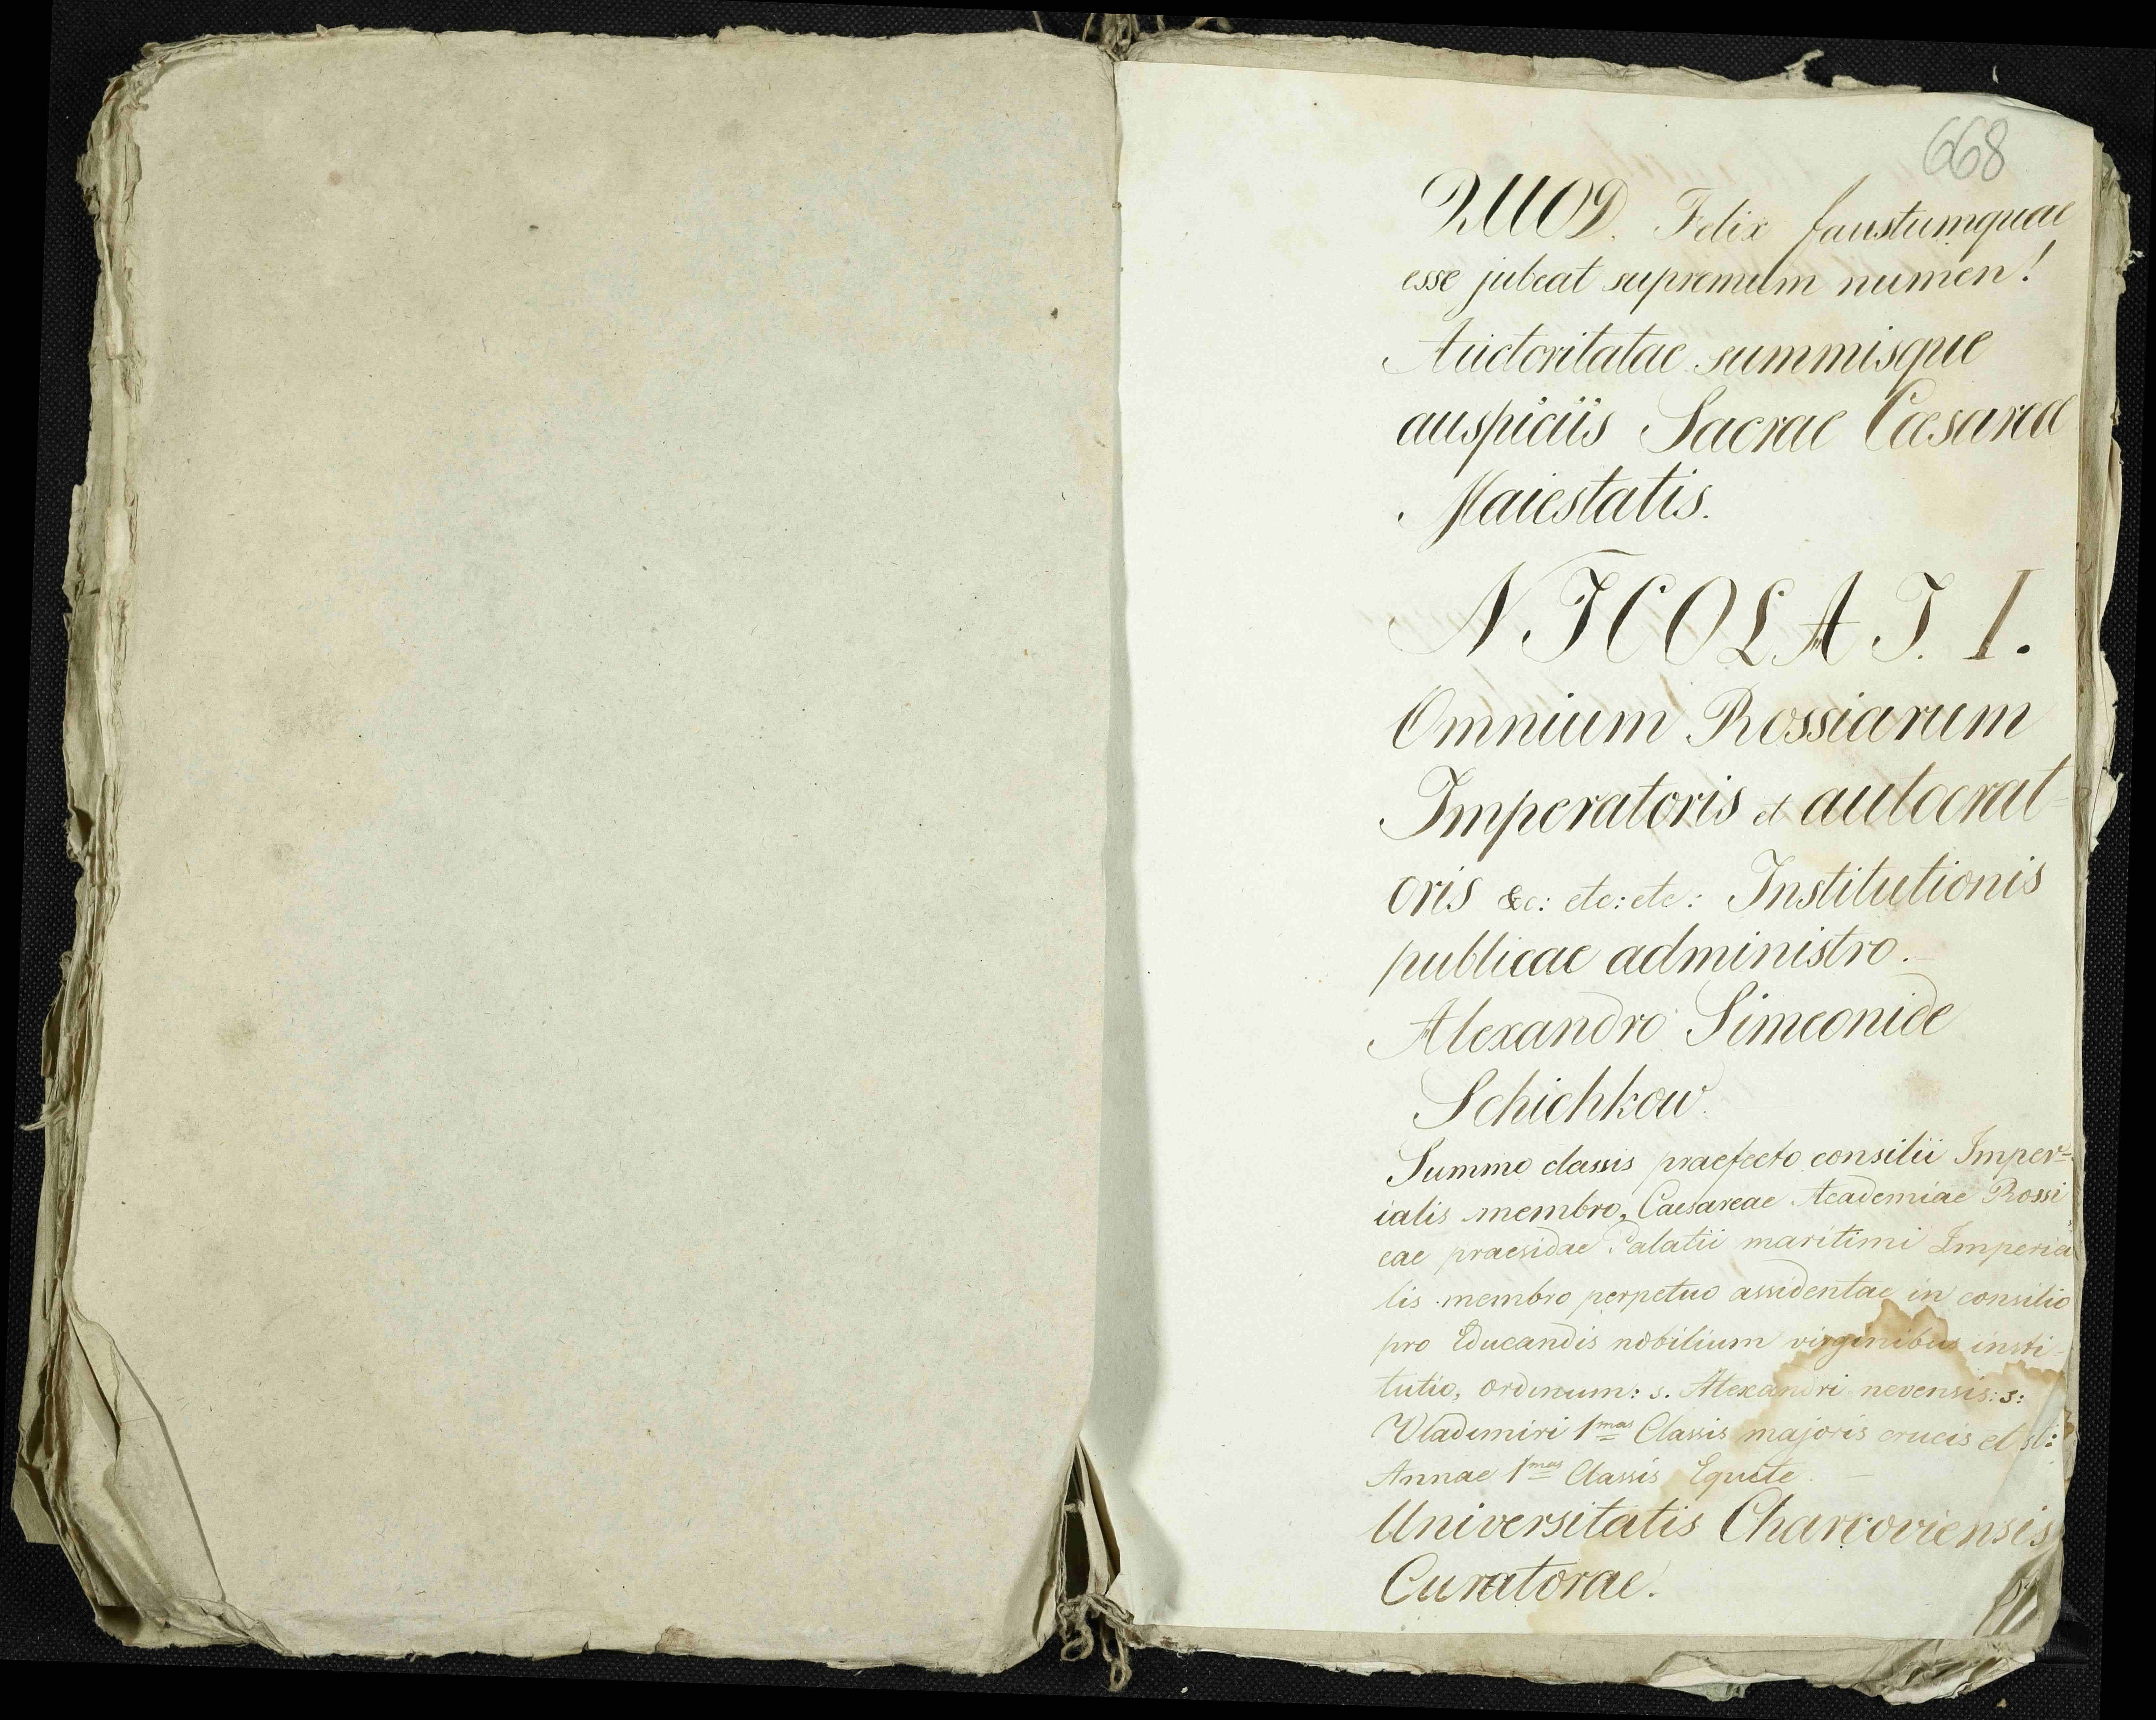 668
QUOD. Felix faustumquae
esse jubeat supremum numen!
Auctoritatae summisque
auspiciis Sacrae Caesareae
Maiestatis.
NICOLAI. I.
Omnium Rossiarum
Imperatoris et autocrat=
oris &c: etc: etc: Institutionis
publicae administro.
Alexandro Simeonide
Schichkow.
Summo classis praefecto consilii Imper=
ialis membro, Caesareae Academiae Rossi
cae praesidae Palatii maritimi Imperia
lis membro perpetuo assidentae in consilio
pro Educandis nobilium virginibus insti-
tutio, ordinum: s. Alexandri nevensis: s:
Vladimiri 1mae Classis majoris crucis et st:
Annae 1mae Classis Equite.
Universitatis Charcoviensis
Curatorae.